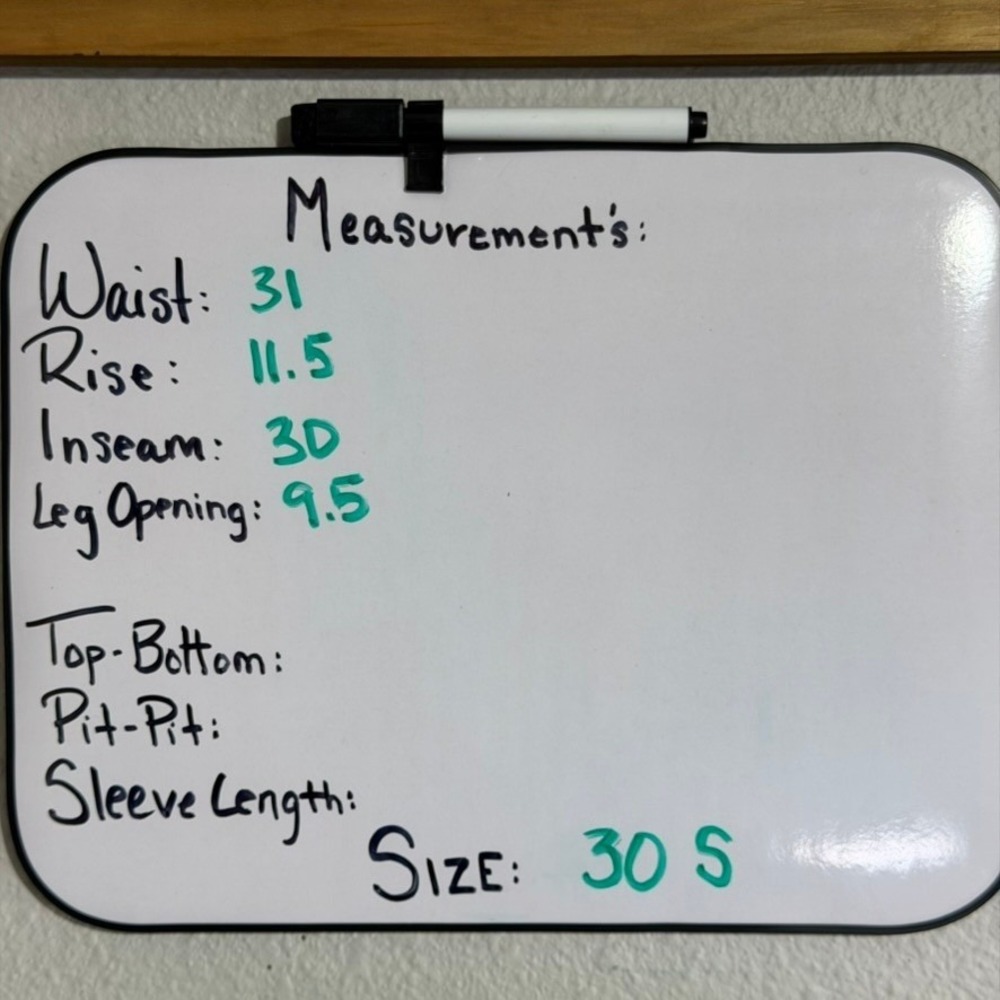 Measurement's:
Waist: 31
Rise: 11.5
Inseam: 30
Leg Opening: 9.5
Top-Bottom:
Pit-Pit:
Sleeve Length:
SIZE: 30 S